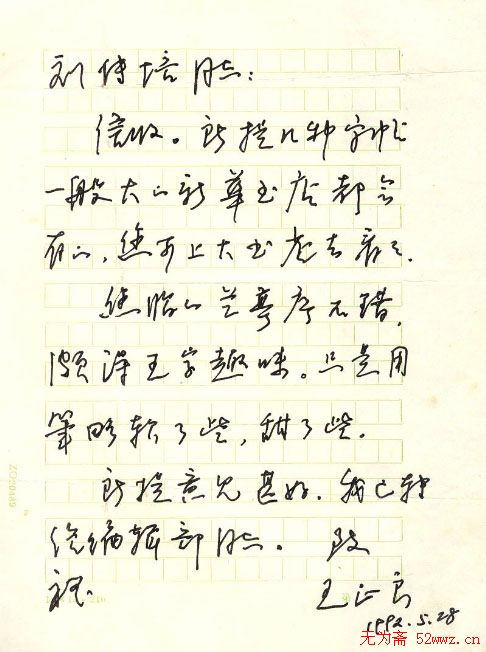 刘传培同志：
信收。所提几种字帖
一般大的新华书店都会
有的，您可上大书店去看看。
您临的兰亭序不错，
颇得王字趣味。只是用
笔略软了些，甜了些。
所提意见甚好，我已转
给编辑部同志。 致
礼
王正良
1992.5.28
无为斋 52wwz.cn